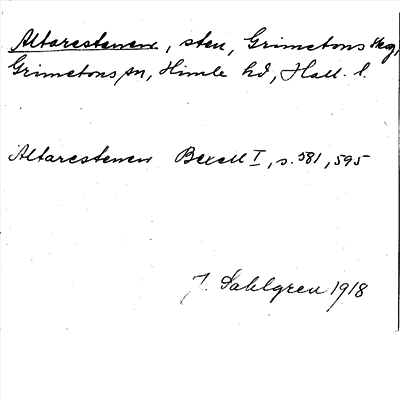 Altarestenen, sten, Grimetons hg,
Grimetons sn, Himle hd, Hall. l.
Altarestenen Bexell I, s. 581, 595
J. Sahlgren 1918